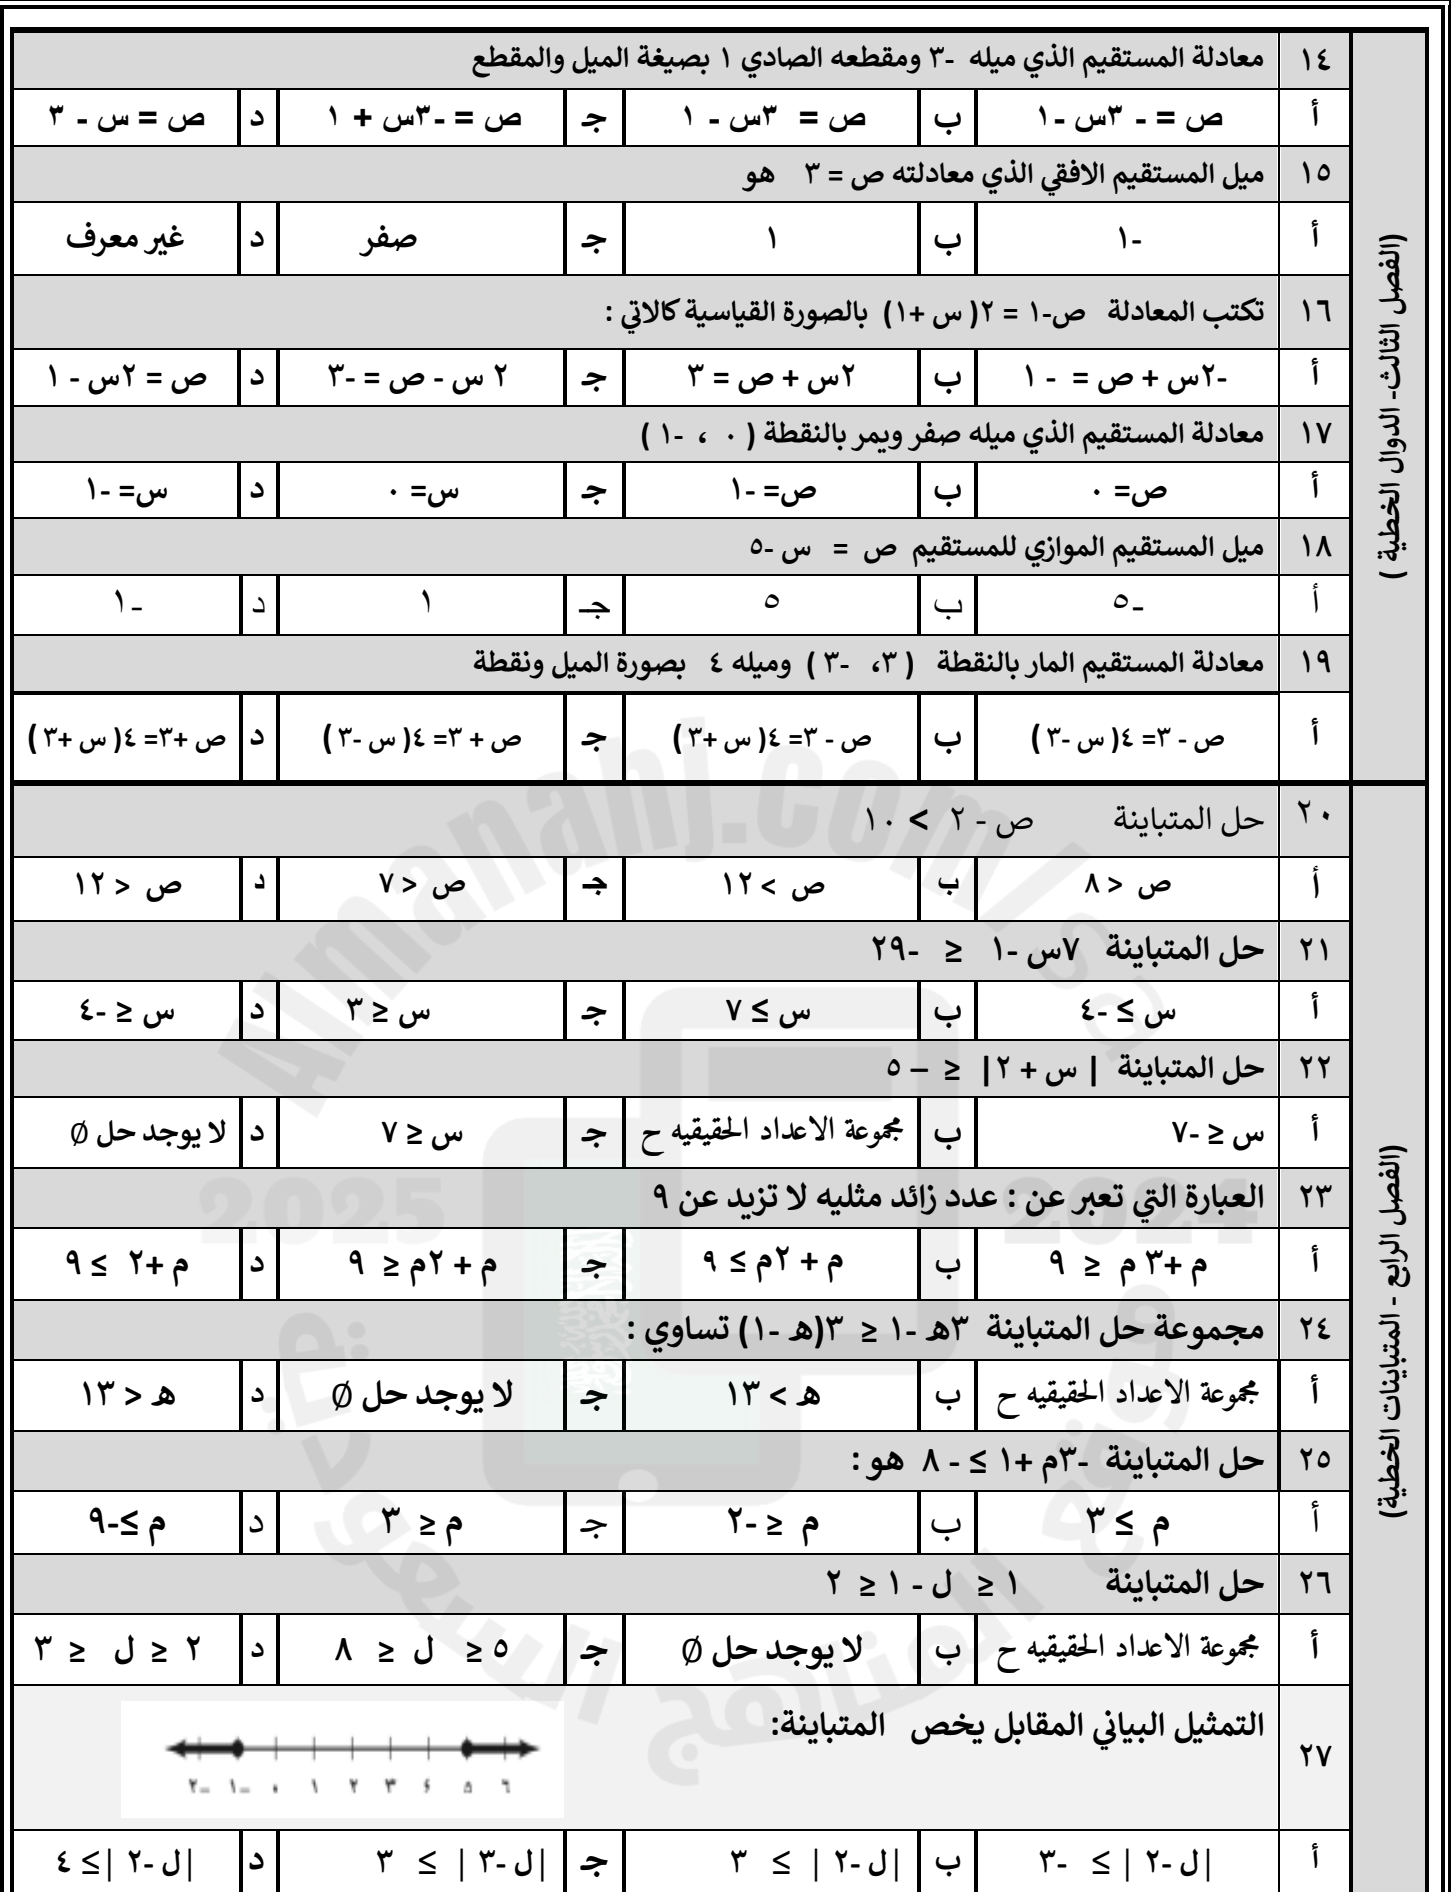 (الفصل الثالث- الدوال الخطية )
١٤ معادلة المستقيم الذي ميله -٣ ومقطعه الصادي ١ بصيغة الميل والمقطع
أ ص = - ٣س -١ ب ص = ٣س - ١ جـ ص = -٣س + ١ د ص = س - ٣
١٥ ميل المستقيم الافقي الذي معادلته ص = ٣ هو
أ -١ ب ١ جـ صفر د غير معرف
١٦ تكتب المعادلة ص-١ = ٢( س +١) بالصورة القياسية كالاتي :
أ -٢س + ص = - ١ ب ٢س + ص = ٣ جـ ٢ س - ص = -٣ د ص = ٢س - ١
١٧ معادلة المستقيم الذي ميله صفر ويمر بالنقطة ( ٠ ، -١ )
أ ص= ٠ ب ص= -١ جـ س= ٠ د س= -١
١٨ ميل المستقيم الموازي للمستقيم ص = س -٥
أ -٥ ب ٥ جـ ١ د -١
١٩ معادلة المستقيم المار بالنقطة ( ٣، -٣ ) وميله ٤ بصورة الميل ونقطة
أ ص - ٣= ٤( س -٣ ) ب ص - ٣= ٤( س +٣ ) جـ ص + ٣= ٤( س -٣ ) د ص +٣= ٤( س +٣ )
(الفصل الرابع - المتباينات الخطية)
٢٠ حل المتباينة ص - ٢ > ١٠
أ ص < ٨ ب ص > ١٢ جـ ص < ٧ د ص < ١٢
٢١ حل المتباينة ٧س -١ ≤ -٢٩
أ س ≥ -٤ ب س ≥ ٧ جـ س ≤ ٣ د س ≤ -٤
٢٢ حل المتباينة | س + ٢| ≤ – ٥
أ س ≤ -٧ ب مجموعة الاعداد الحقيقيه ح جـ س ≤ ٧ د لا يوجد حل Ø
٢٣ العبارة التي تعبر عن : عدد زائد مثليه لا تزيد عن ٩
أ م +٣ م ≤ ٩ ب م + ٢م ≥ ٩ جـ م + ٢م ≤ ٩ د م +٢ ≥ ٩
٢٤ مجموعة حل المتباينة ٣هـ -١ ≤ ٣(هـ -١) تساوي :
أ مجموعة الاعداد الحقيقيه ح ب هـ > ١٣ جـ لا يوجد حل Ø د هـ < ١٣
٢٥ حل المتباينة -٣م +١ ≥ - ٨ هو :
أ م ≥ ٣ ب م ≤ -٢ جـ م ≤ ٣ د م ≥-٩
٢٦ حل المتباينة ١ ≤ ل - ١ ≤ ٢
أ مجموعة الاعداد الحقيقيه ح ب لا يوجد حل Ø جـ ٥ ≤ ل ≤ ٨ د ٢ ≤ ل ≤ ٣
٢٧ التمثيل البياني المقابل يخص المتباينة:
-٢ -١ ٠ ١ ٢ ٣ ٤ ٥ ٦
أ |ل -٢ | ≥ -٣ ب |ل -٢ | ≥ ٣ جـ |ل -٣ | ≥ ٣ د |ل -٢ |≥ ٤
Almanahj.com/sa
2025 2024
موقع المناهج السعودية